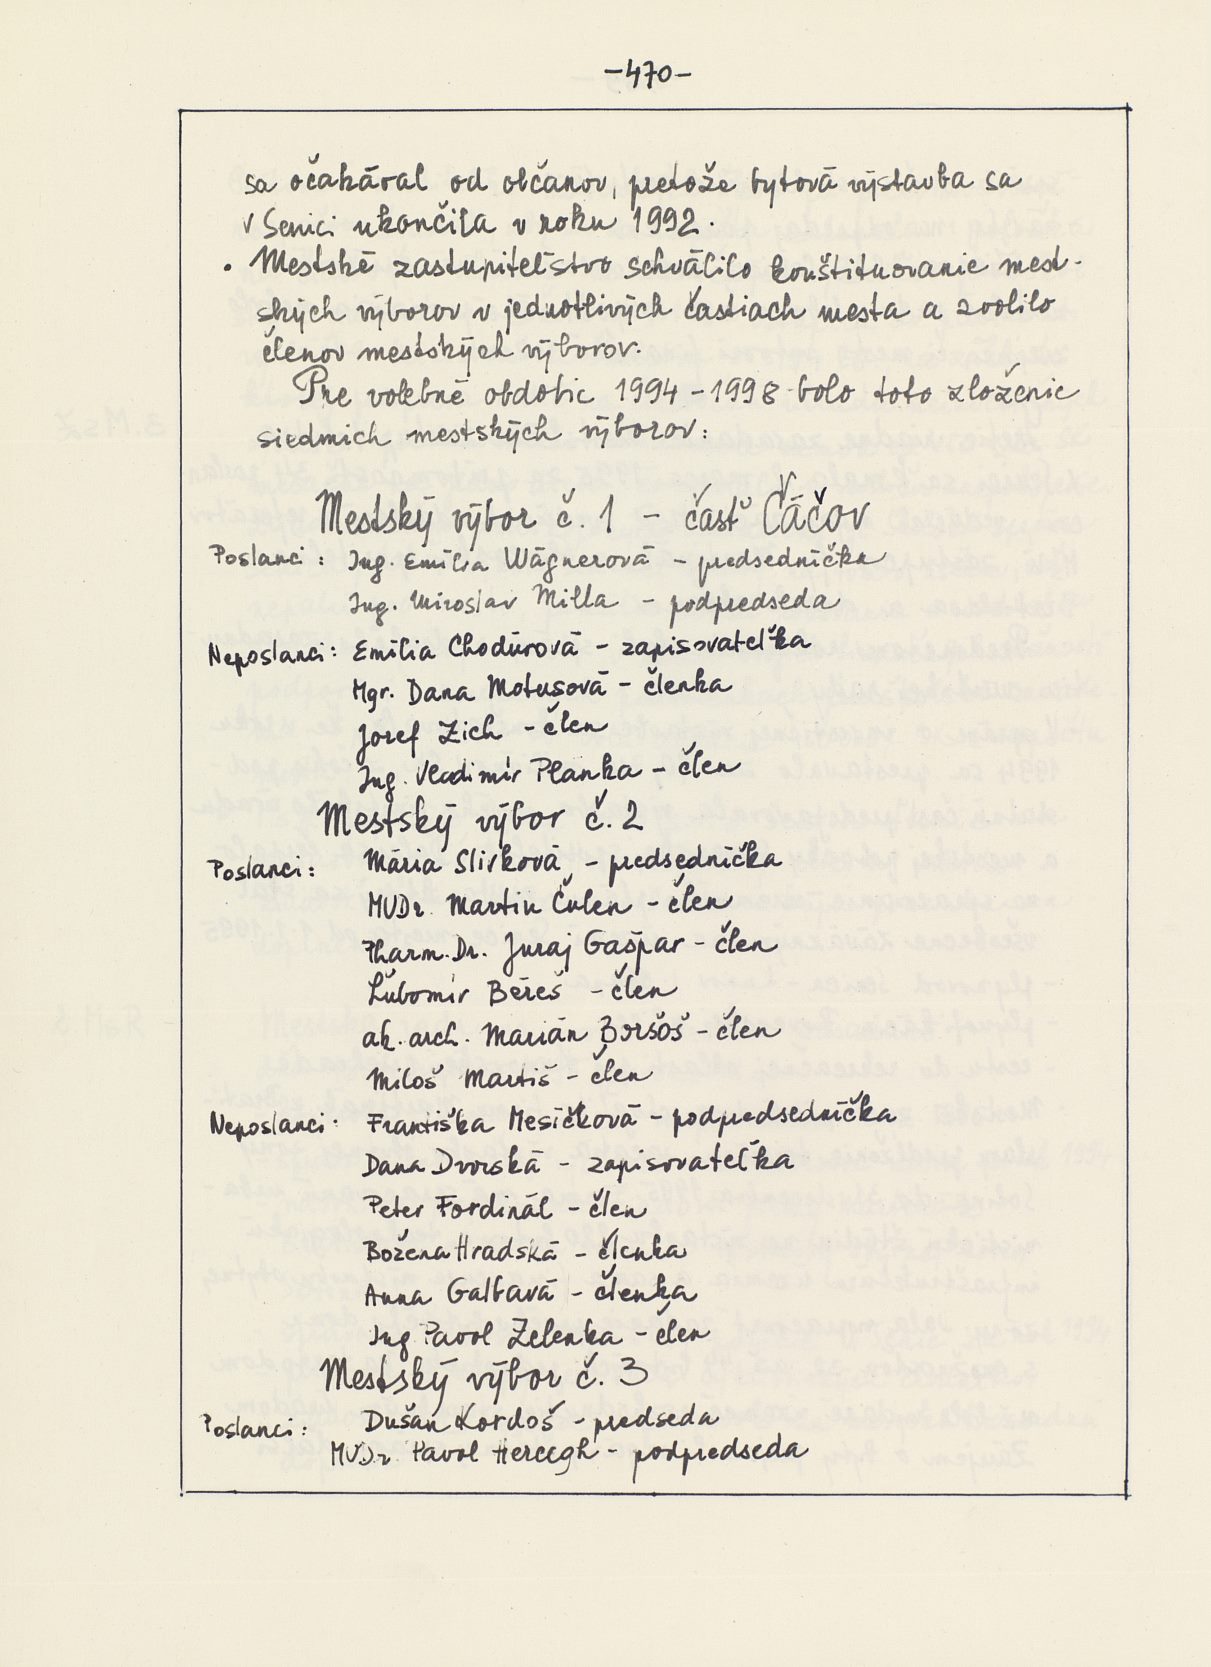 -470-
sa očakával od občanov, pretože bytová výstavba sa
v Senici ukončila v roku 1992.
• Mestské zastupiteľstvo schválilo konštituovanie mest-
ských výborov v jednotlivých častiach mesta a zvolilo
členov mestských výborov.
Pre volebné obdobie 1994-1998 bolo toto zloženie
siedmich mestských výborov:
Mestský výbor č. 1 - časť Čáčov
Poslanci: Ing. Emília Wágnerová - predsedníčka
Ing. Miroslav Milla - podpredseda
Neposlanci: Emília Chodúrová - zapisovateľka
Mgr. Dana Motusová - členka
Jozef Zich - člen
Ing. Vladimír Planka - člen
Mestský výbor č. 2
Poslanci: Mária Slivková - predsedníčka
MUDr. Martin Čulen - člen
Pharm. Dr. Juraj Gašpar - člen
Ľubomír Béreš - člen
ak. arch. Marián Boršoš - člen
Miloš Martiš - člen
Neposlanci: Františka Mesíčková - podpredsedníčka
Dana Dvorská - zapisovateľka
Peter Fordinál - člen
Božena Hradská - členka
Anna Galbavá - členka
Ing Pavol Zelenka - člen
Mestský výbor č. 3
Poslanci: Dušan Kordoš - predseda
MVDr Pavol Herczegh - podpredseda